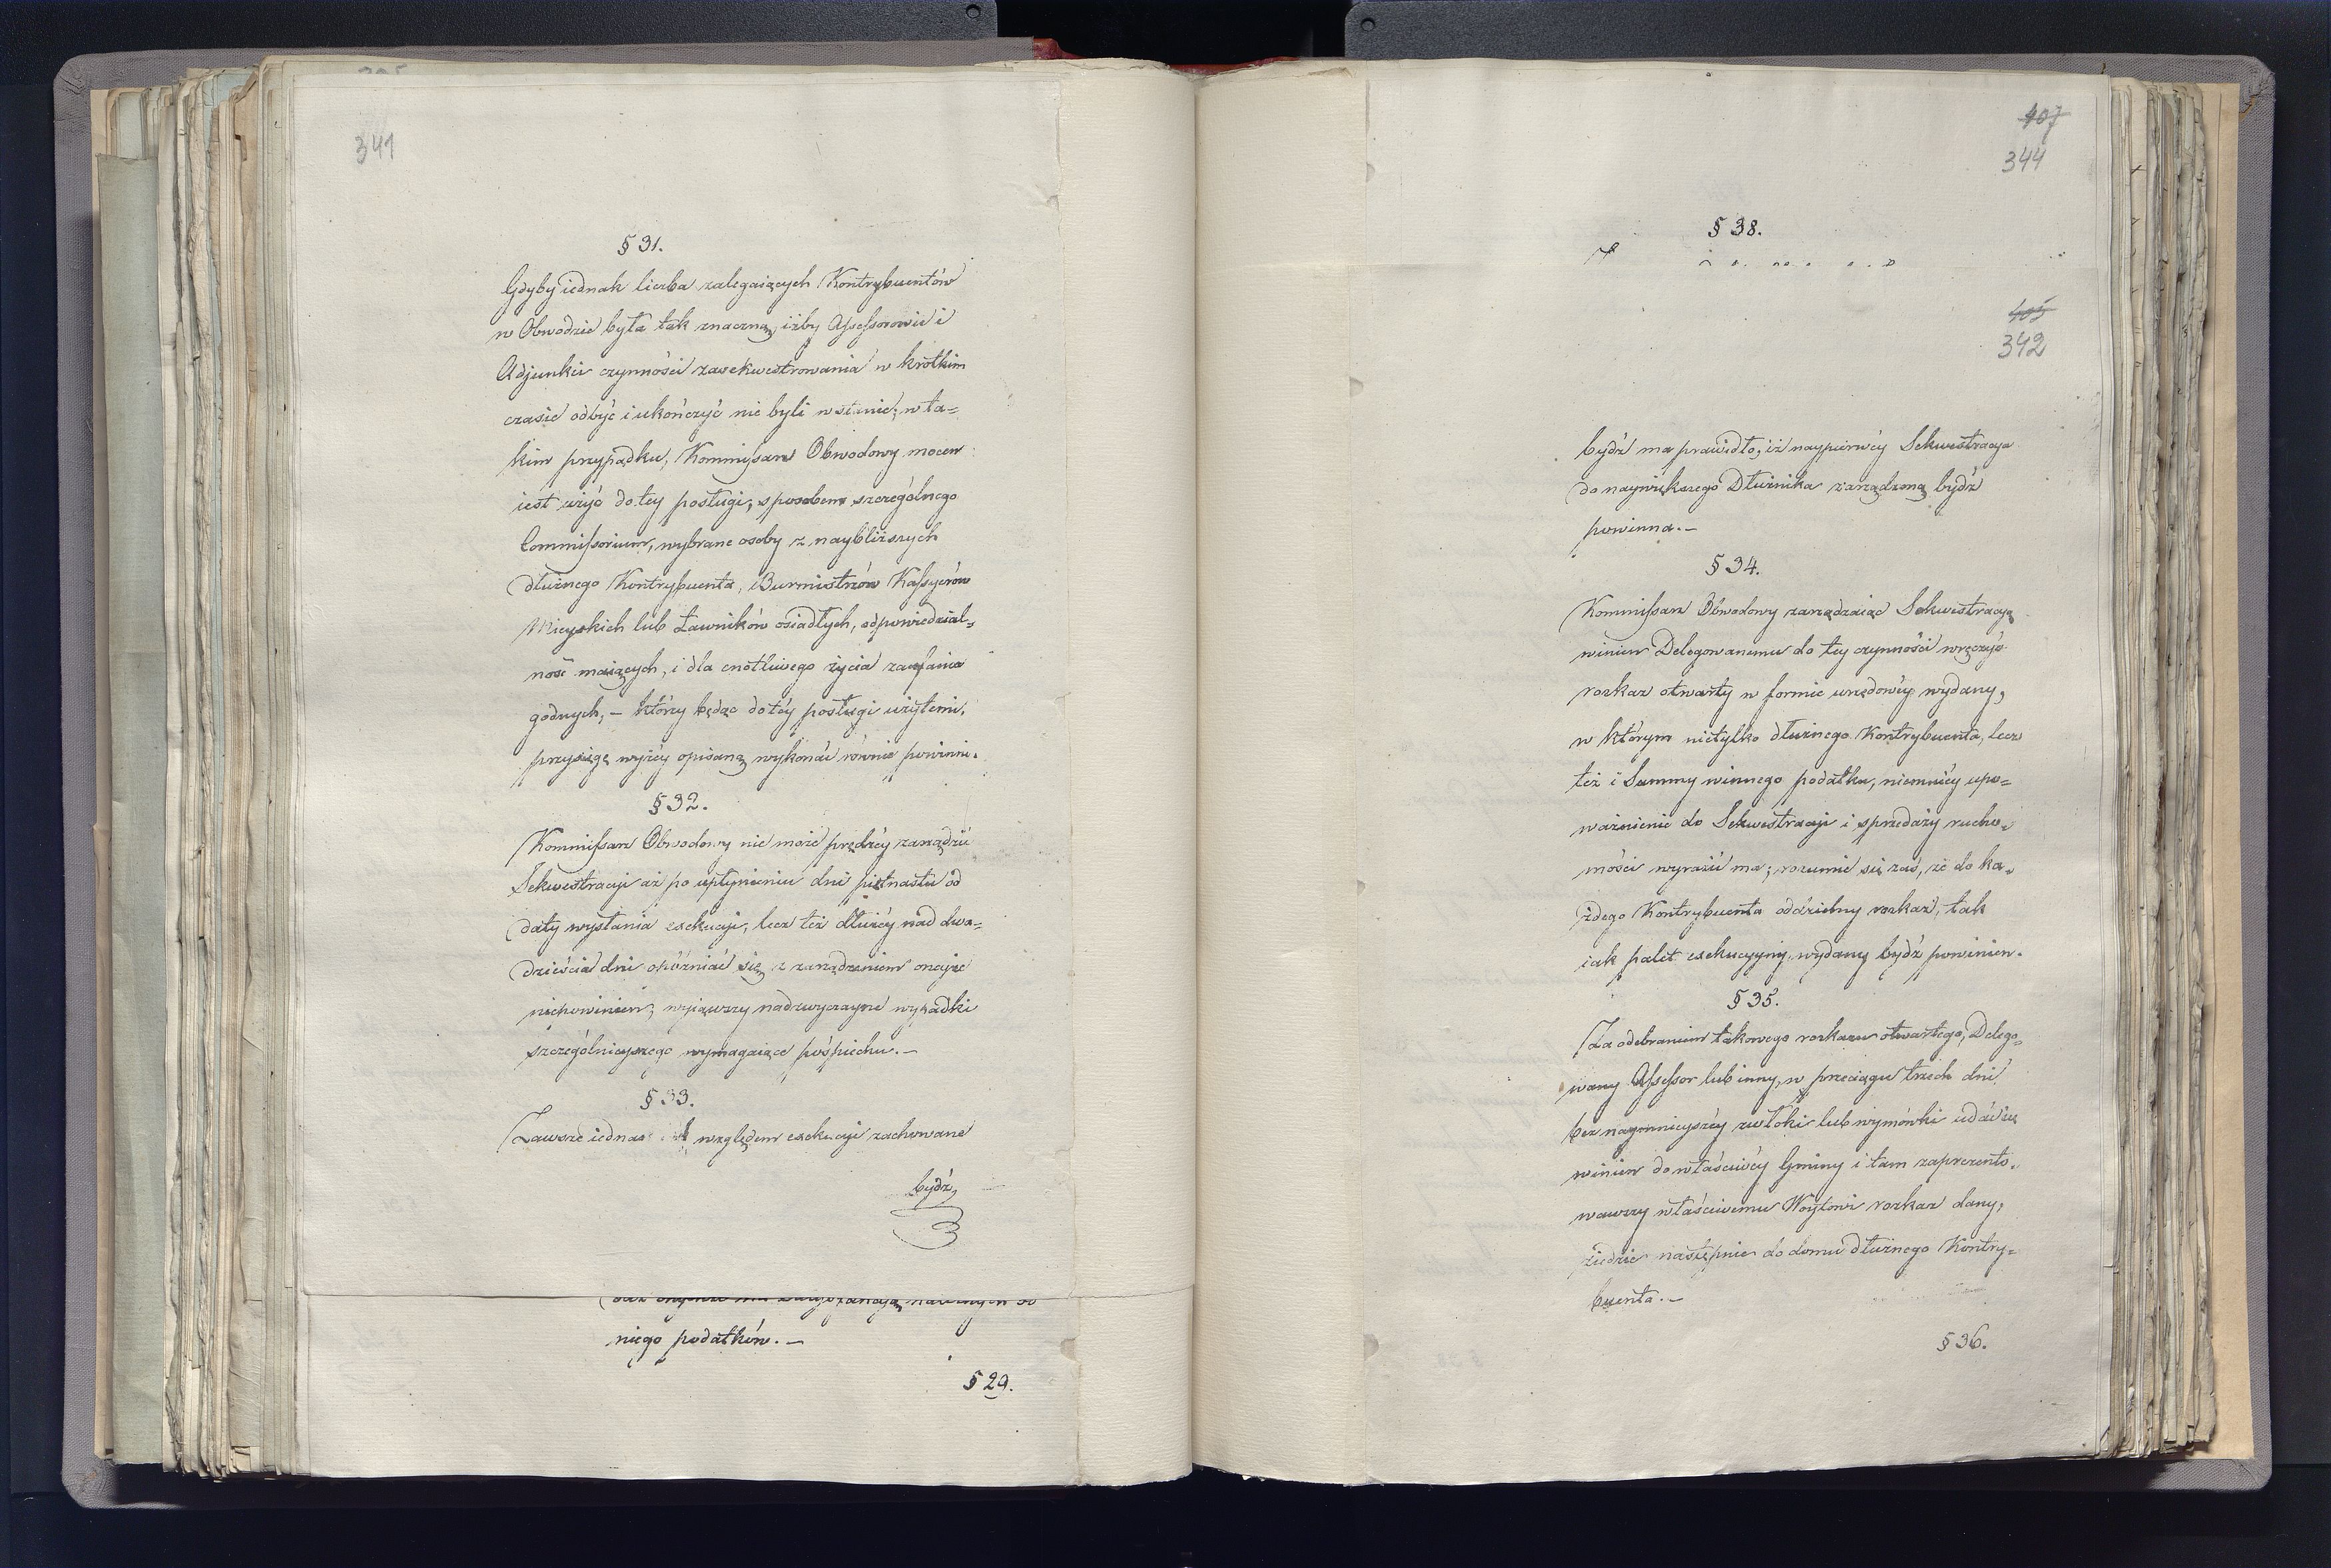 341
§ 31.
Gdyby iednak liczba zalegaiących Kontrybuentów
w Obwodzie była tak znaczną, iżby Assessorowie i
Adjunkci czynności zasekwestrowania w krótkim
czasie odbyć i ukończyć nie byli w stanie; w ta=
kim przypadku, Kommissarz Obwodowy mocen
iest użyć do tey posługi, sposobem szczególnego
Commissorium, wybrane osoby z naybliższych
dłużnego Kontrybuenta, Burmistrzów Kassyerów
Mieyskich lub Ławników osiadłych, odpowiedzial=
ność maiących, i dla cnotliwego życia zaufania
godnych, – którzy będąc do téy posługi użytemi,
przysięgę wyżéy opisaną wykonać równie powinni.
§ 32.
Kommissarz Obwodowy nie może prędzéy zarządzić
Sekwestracji aż po upłynieniu dni piętnastu od
daty wysłania exekucji, lecz też dłużéy nad dwa=
dzieścia dni opóźniać się z zarządzeniem onejże
niepowinien; wyiąwszy nadzwyczayne wypadki
szczególnieyszego wymagaiące pośpiechu. –
§ 33.
Zawsze iednak względem exekucji zachowane
bydź,
niego podatków. –
§ 29.
407
344
§ 38.
405
342
bydź ma prawidło, iż naypierwéy Sekwestracya
do naywiększego Dłużnika zarządzoną bydź
powinna. –
§ 34.
Kommissarz Obwodowy zarządzaiąc Sekwestracyą
winien Delegowanemu do tey czynności wręczyć
rozkaz otwarty w formie urzędowéy wydany,
w którym nietylko dłużnego Kontrybuenta, lecz
też i Summy winnego podatku, niemniéy upo=
ważnienie do Sekwestracji i sprzedaży rucho=
mości wyrazić ma; rozumie się zaś, że do ka=
żdego Kontrybuenta oddzielny rozkaz, tak
iak palet exekucyyny, wydany bydź powinien.
§ 35.
Za odebraniem takowego rozkazu otwartego, Delego=
wany Assessor lub inny, w przeciągu trzech dni
bez naymnieyszéy zwłoki lub wymówki udać się
winien do właściwéy Gminy i tam zaprezento=
wawszy właściwemu Woytowi rozkaz dany,
ziedzie następnie do domu dłużnego Kontry=
buenta. –
§ 36.